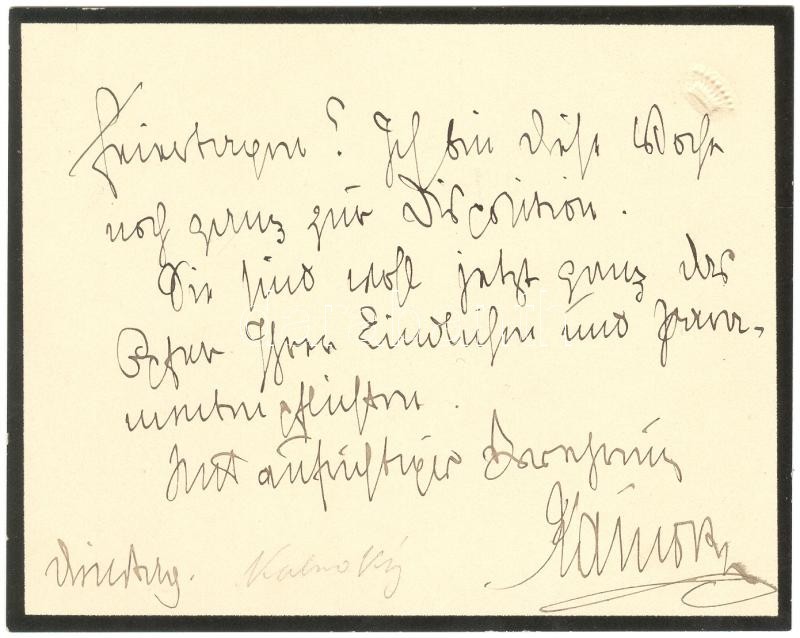 Feiertagen? Ich bin diese Woche
noch ganz zur Disposition.
Sie sind wohl jetzt ganz das
Opfer Ihrer kindlichen und
pflichten.
Mit aufrichtiger Verehrung
Kálnoky
Dienstag. Kalnoky